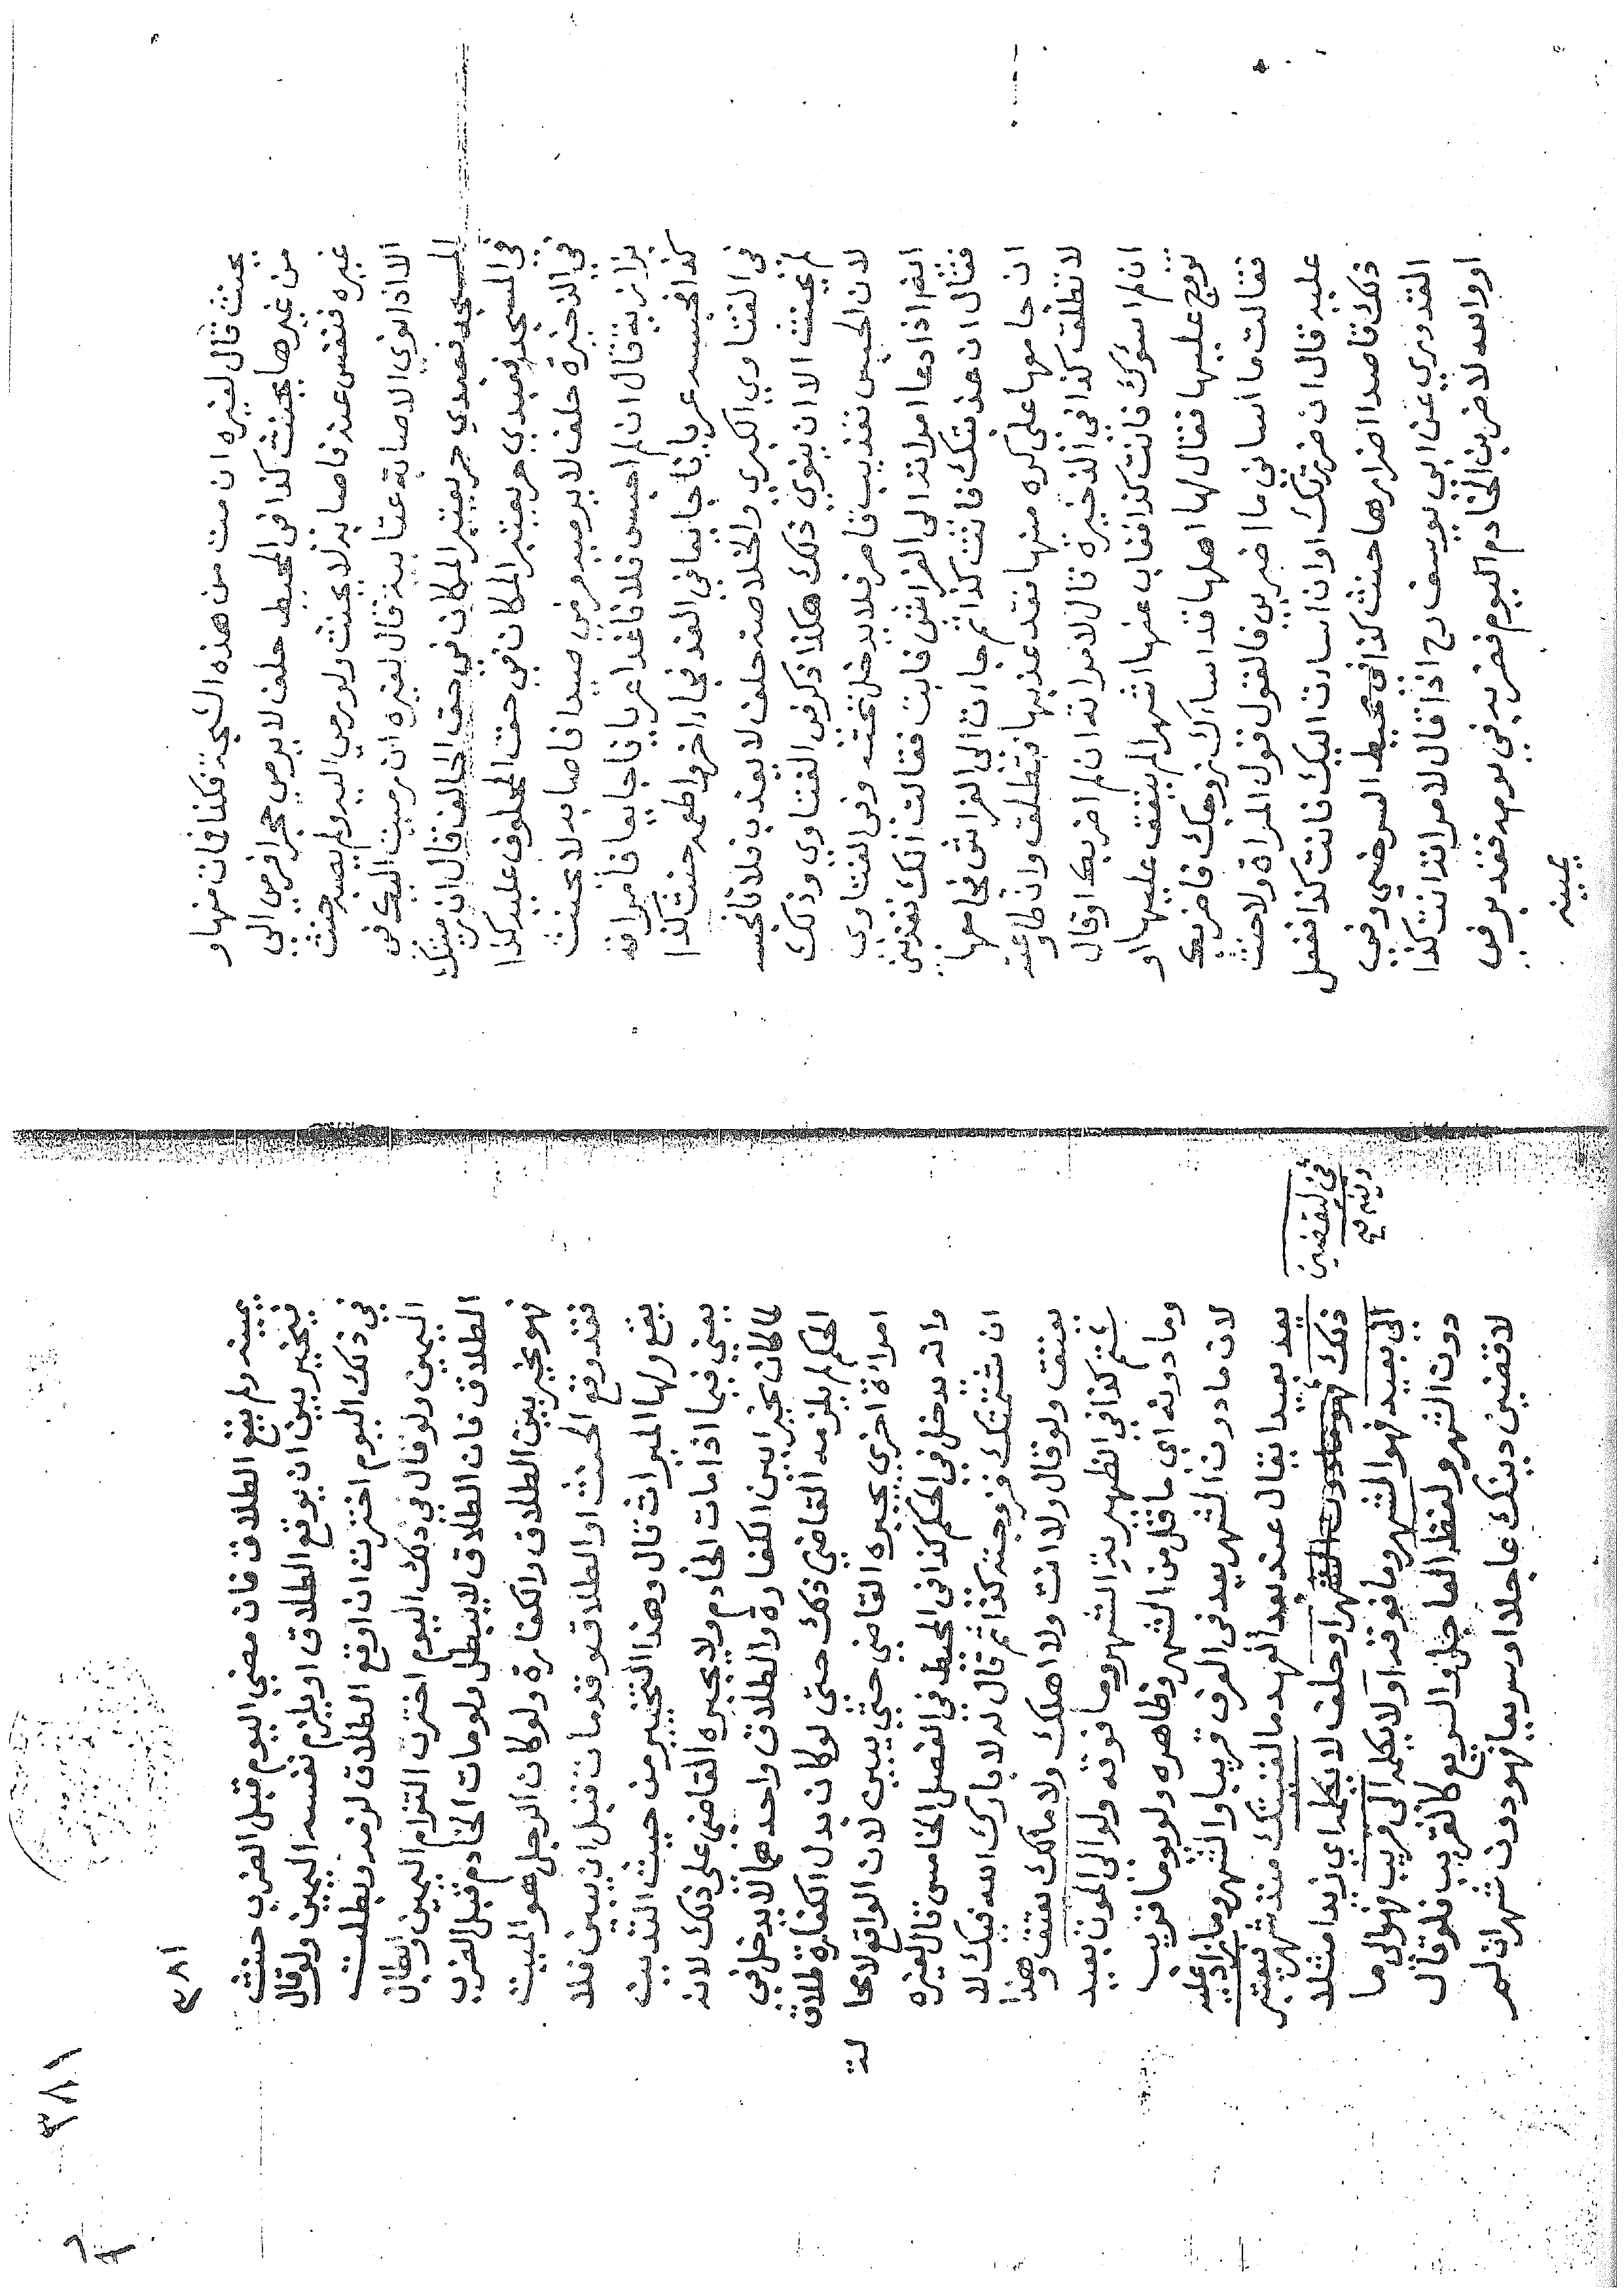 يحنث قال لغيره ان مت من هذه الشجة فكذا فمات منها و
من غيرها يحنث كذا في المحيط حلف لا يرمي حجرا فرمي الي
غيره فنفس عنه فاصابه لا يحنث ولو رمي اليه ولم يصبه حنث
الا اذا نوي الاصابة عتابيه قال لغيره ان رميت اليك في
المسجد فعبدي حر يعتبر المكان في حق الحالف قال ان رميتك
في المسجد فعبدي حر يعتبر المكان في حق المحلوف عليه كذا
في الذخيرة حلف لا يرميه فرمي صيدا فاصابه لا يحنث
بزازيه قال ان لم احبس فلانا غدا عريانا جايعا فامراته
كذا فحبسه عريانا جايعا في الغد فجاء اخر واطعمه حنث كذا
في الفتاوي الكبري والخلاصه حلف لا يعذب فلانا فحبسه
لم يحنث الا ان ينوي ذلك هكذا ذكر في الفتاوي وذلك
لان الحبس تعذيب قاصر فلا يدخل تحته وفي الفتاوي
انه اذا دعا امراته الي الفراش فابت فقالت انك تعذبني
فقال ان عذبتك فانت كذا ثم جاءت الي الفراش فجامعها
ان جامعها علي كره منها فقد عذبها فتطلق وان طاوعته
لا تطلق كذا في الذخيرة قال لامراته ان لم اضربك او قال
ان لم اسؤك فانت كذا فغاب عنها اشهرا لم ينفق عليها او
تزوج عليها فقال لها اهلها قد اساءك زوجك فاضربك
فقالت ما اساني ما اضربي فالقول قول المراة ولا حنث
عليه قال ان ضررتك او ان اسات اليك فانت كذا ففعل
ذلك قاصدا اضرارها حنث كذا في محيط السرخسي وفي
القدوري عن ابي يوسف رح اذا قال لامراته انت كذا
او والله لاضربن الخادم اليوم فضربه في يومه فقد بر في
يمينه
٣٨١
٣٨١
يمينه ولم يقع الطلاق فان مضي اليوم قبل الضرب حنث
فيخير بين ان يوقع الطلاق او يلزم نفسه اليمين ولو قال
في ذلك اليوم اخترت ان اوقع الطلاق لزمه وبطلت
اليمين ولو قال في ذلك اليوم اخترت التزام اليمين وابطال
الطلاق فان الطلاق لا يبطل ولو مات الخادم قبل الضرب
فهو يخير بين الطلاق والكفارة ولو كان الرجل هو الميت
فقد وقع الحنث او الطلاق وقد مات قبل ان يبين فلا
يقع ولها الميراث قال وهذا التخيير من حيث التدين
يعني فيما اذا مات الخادم ولا يجبره القاضي علي ذلك لانه
لما كان مخيرا بين الكفارة والطلاق واحدهما لا يدخل في
الحكم لم يلزمه القاضي ذلك حتي لو كان بدل الكفارة طلاق
امراة اخري يجبره القاضي حتي يبين لان الواقع لا محا
لة
وانه يدخل في الحكم كذا في المحيط في الفصل الخامس قال لغيره
ان شتمتك فزوجته كذا ثم قال له لا بارك الله فيك لا
يعتق ولو قال ولا انت ولا اهلك ولا مالك يعتق وهذا
شتم كذا في الظهيريه الشهر وما فوقه ولو الي الموت بعيد
وما دونه اي ما قل من الشهر وظاهره ولو يوما قريب
لان ما دون الشهر يعد في العرف قريبا والشهر وما زاد عليه
يعد بعيدا يقال عند بعد العهد ما لقيتك منذ شهر يعتبر
في ليقضين
دينه مع
ذلك فهو ما دون الشهر او حلف لا يكلمه اي زيدا مثلا
الي بعيد فهو الشهر وما فوقه او لا يكلمه الي قريب فهو الي ما
دون الشهر ولفظ العاجل والسريع كالقريب فلو قال
لاقضين دينك عاجلا او سريعا فهو دون شهران لم